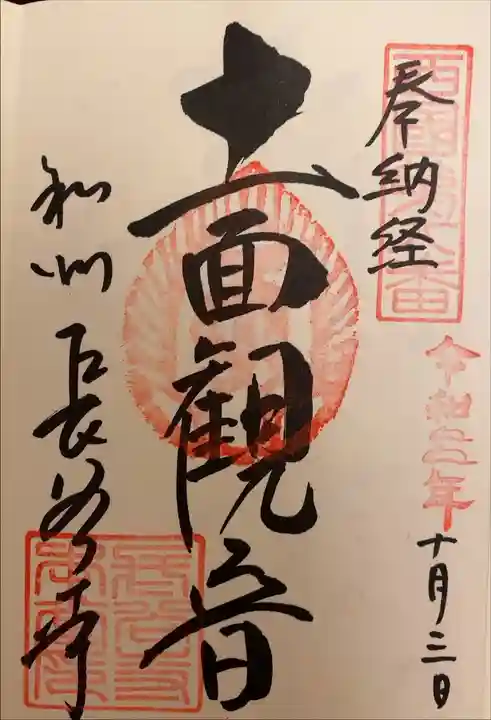 奉納経
令和二年十月三日
十一面観音
和州 長谷寺